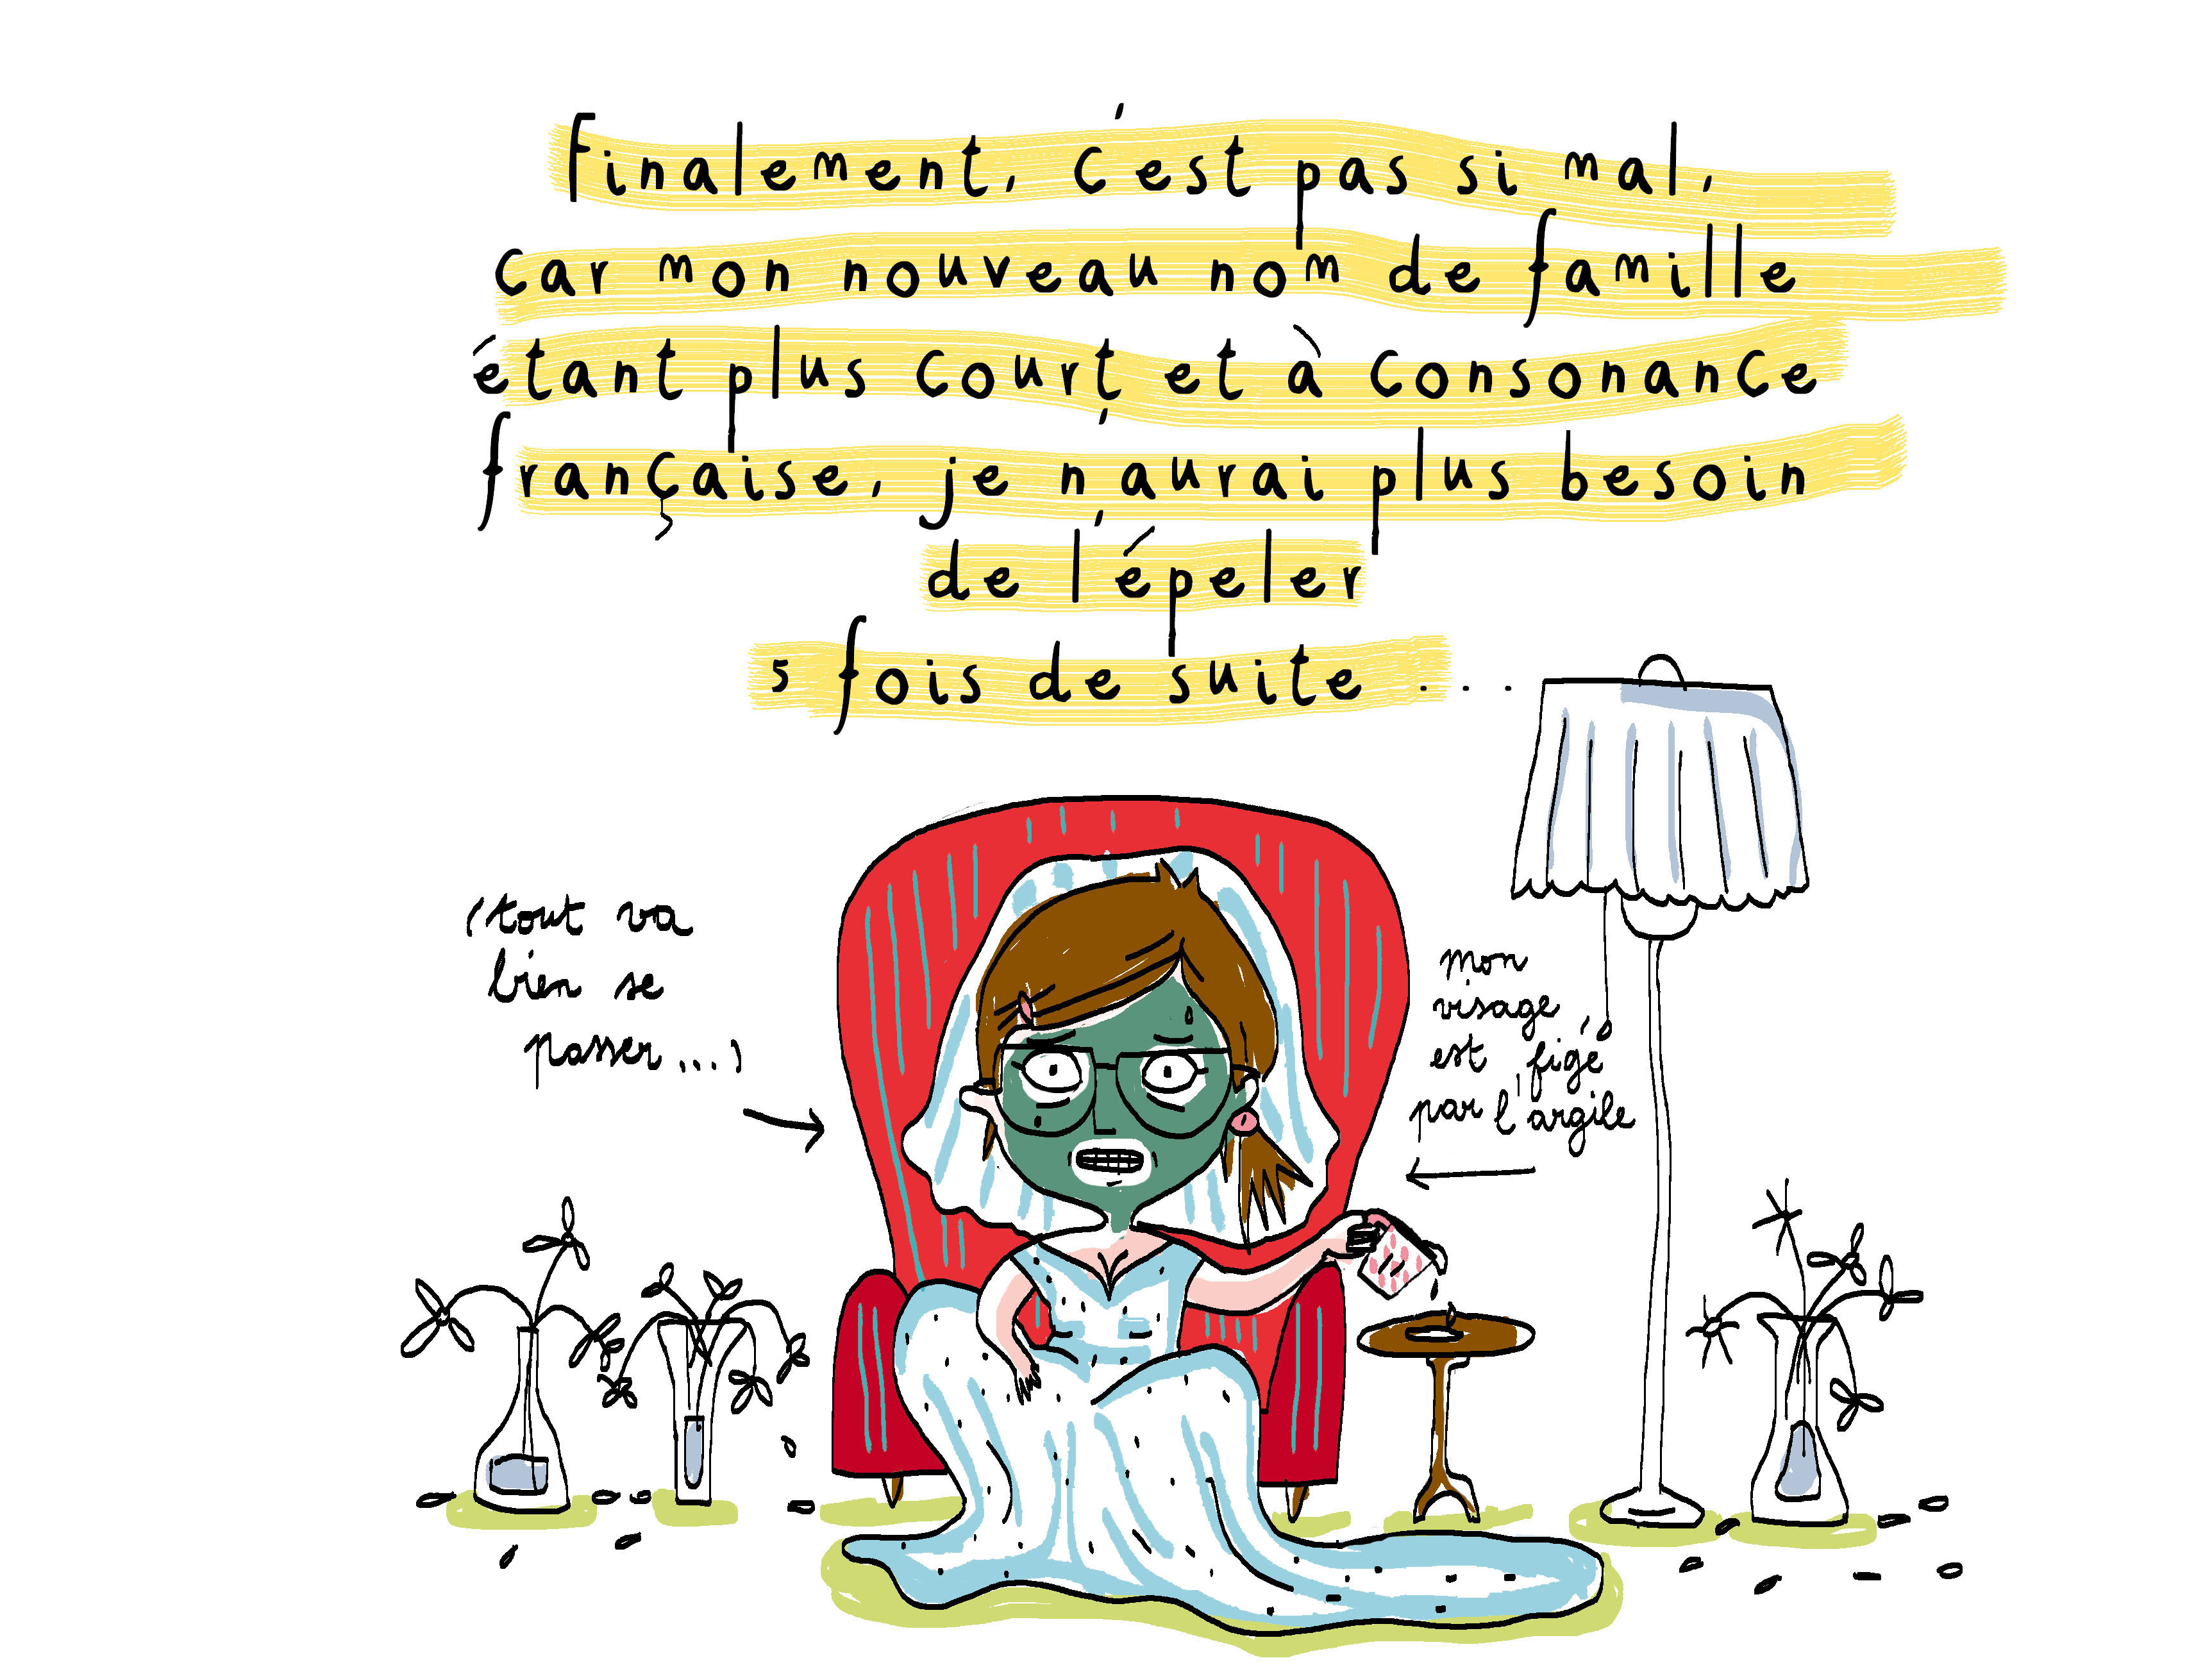 Finalement, c'est pas si mal,
car mon nouveau nom de famille
étant plus court et à consonance
française, je n'aurai plus besoin
de l'épeler
5 fois de suite ....
(tout va
bien se
passer...)
mon
visage
est figé
par l'argile